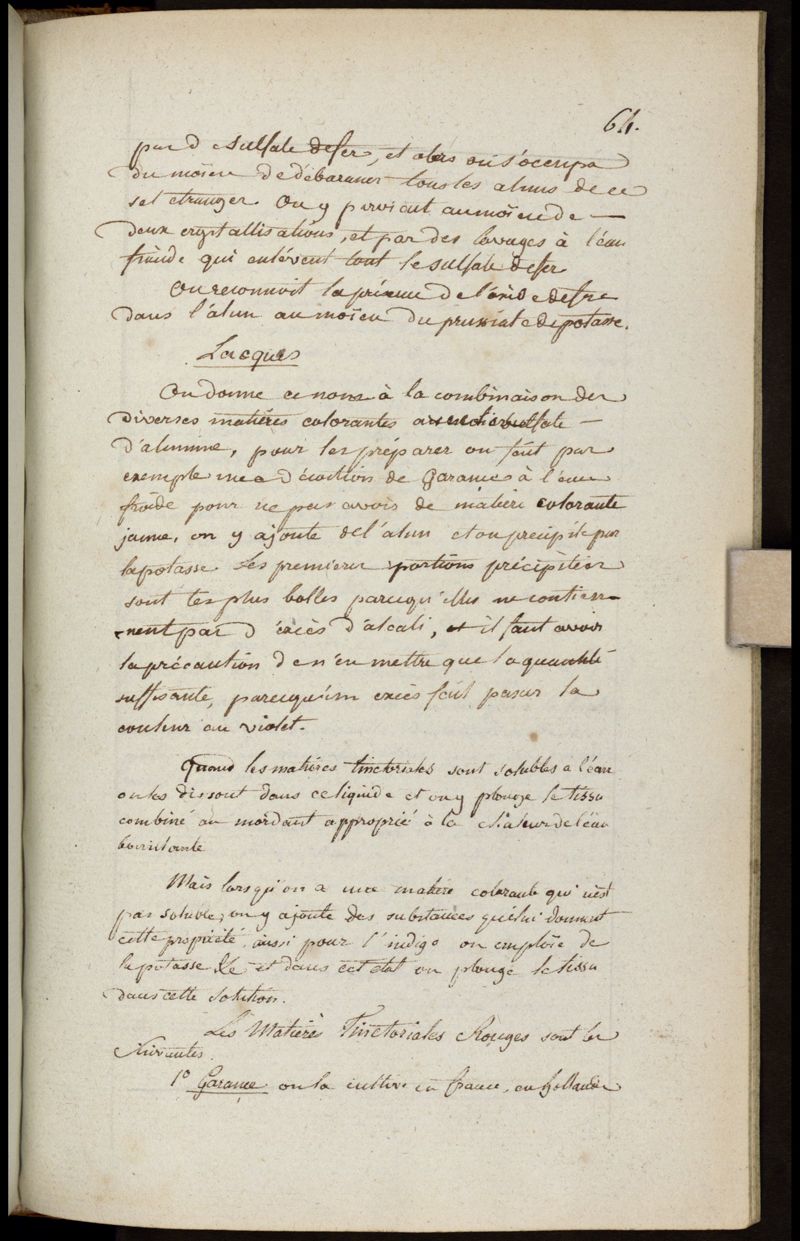 64.
pas de sulfate de fer, et alors on s'occupa
du moïen de débarasser tous les aluns de ce
sel etranger. On y parvient au moïen de —
deux crystallisations, et par des lavages à l'eau
froide qui enlévent tout le sulfate de fer
On reconnoit la présence de l'oxide de fer
dans l'alun au moïen du prussiate de potasse.
Lacques
On donne ce nom à la combinaison des
diverses matières colorantes au sulfate —
d'alumine, pour les préparer on fait par
exemple une décoction de Garance à l'eau
froide pour ne pas avoir de matiere colorante
jaune, on y ajoute de l'alun et on precipite par
la potasse. Les premieres portions précipitées
sont les plus belles parcequ'elles ne contien-
-nent pas d'éxcès d'alcali, et il faut avoir
la précaution de n'en mettre que la quantité
suffisante, parcequ'un excès fait passer la
couleur au violet.
Quand les matières tinctoriales sont solubles a l'eau
on les dissout dans ce liquide et on y plonge le tissu
combiné au mordant approprié à la chaleur de l'eau
bouillante
Mais lorsqu'on a une matière colorante qui n'est
pas soluble, on y ajoute des substances qui lui donnent
cette propriété, aussi pour l'indigo on emploie de
la potasse &c et dans cet etat on plonge le tissu
dans cette solution.
Les Matières Tinctoriales Rouges sont les
suivantes.
1° Garance on la cultive en france, en hollande